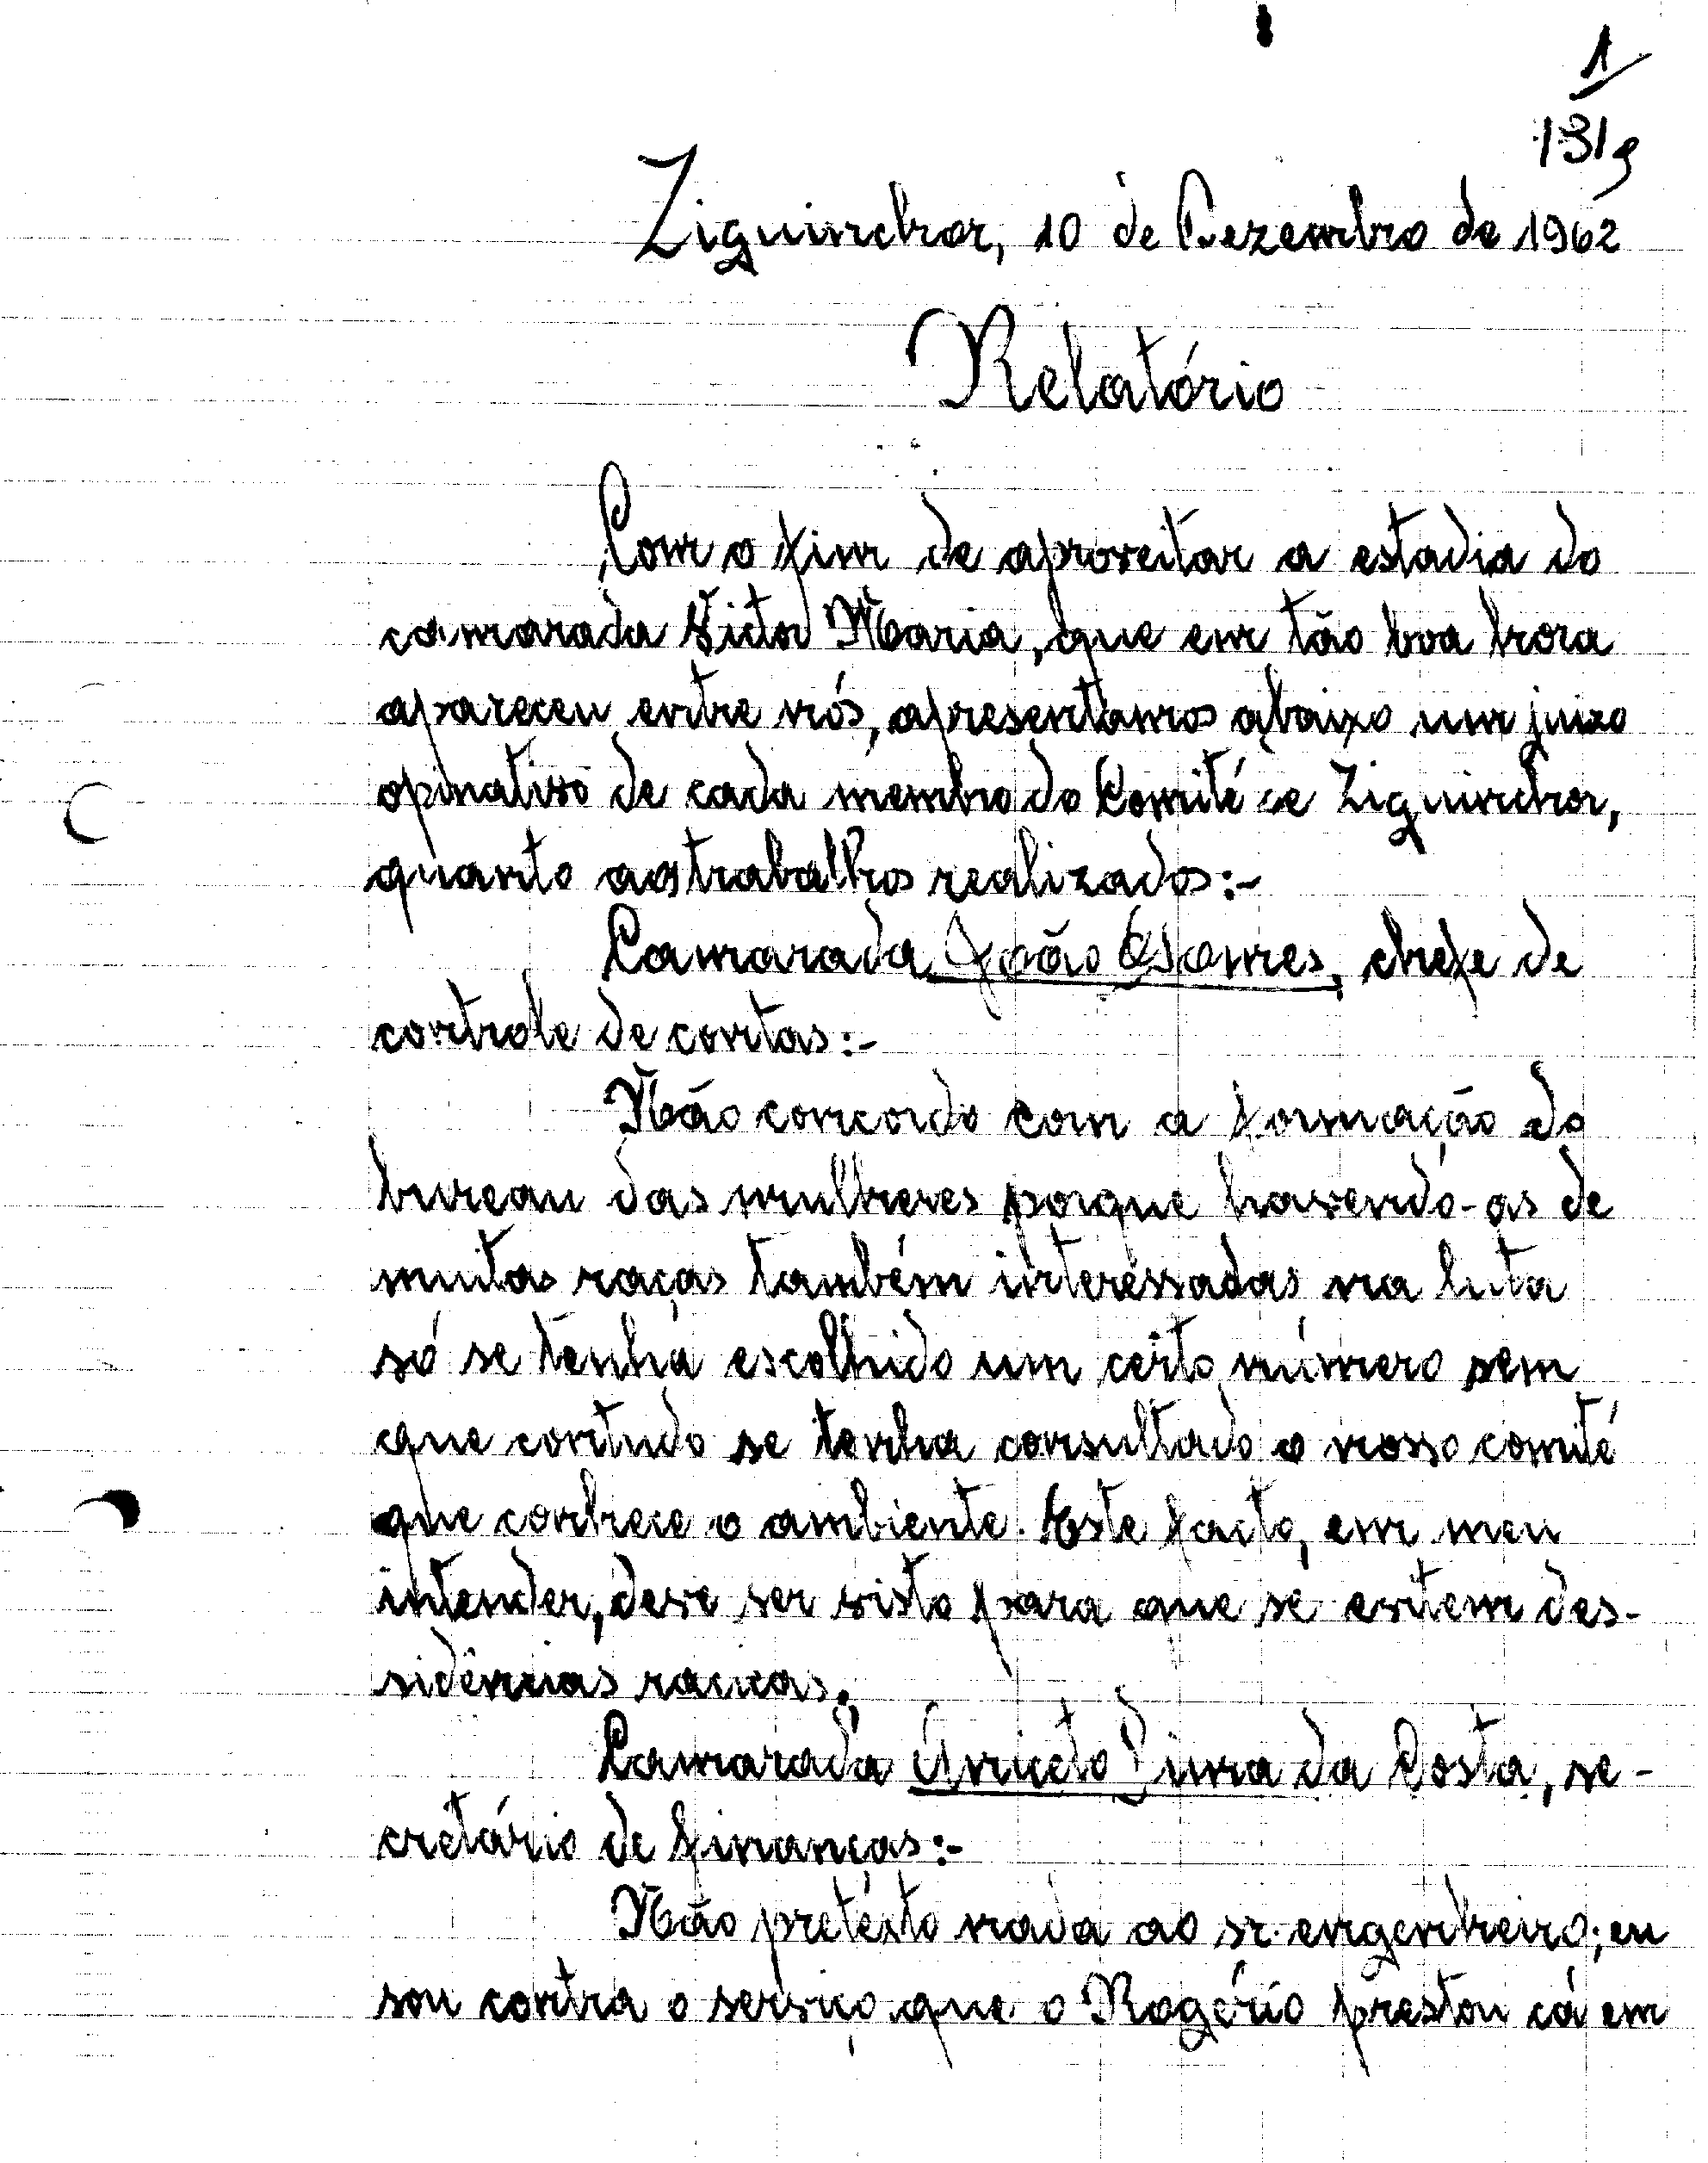 1
131
Ziguinchor, 10 de Dezembro de 1962
Relatório
Com o fim de aproveitar a estadia do
camarada Victor Maria, que em tão boa hora
apareceu entre nós, apresentamos abaixo um juizo
opinativo de cada membro do Comité de Ziguinchor,
quanto aos trabalhos realizados:-
Camarada João Gomes, chefe de
controle de contas:-
Não concordo com a formação do
bureau das mulheres porque havendo-as de
muitas raças também interessadas na luta
só se tenha escolhido um certo número sem
que contudo se tenha consultado o nosso comité
que conhece o ambiente. Este facto, em meu
intender, deve ser visto para que se evitem des-
sidências racicas.
Camarada Aniceto Dima da Costa, se-
cretário de finanças:-
Não pretésto nada ao sr. engenheiro; eu
sou contra o serviço que o Rogério prestou cá em